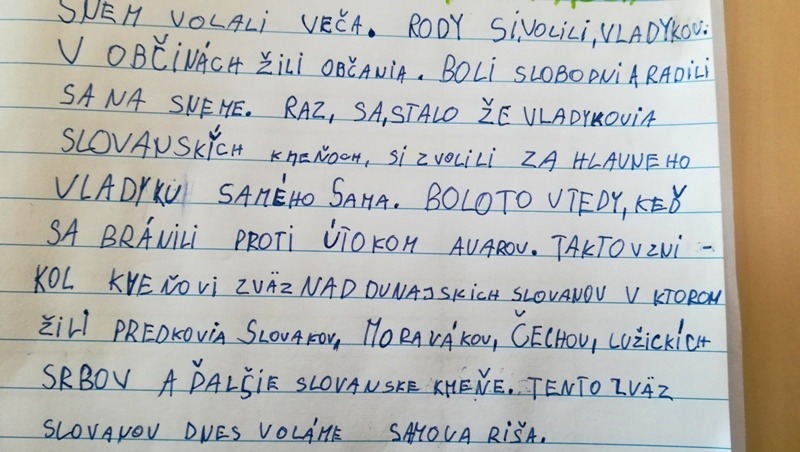 SNEM VOLALI VEČA. RODY SI,VOLILI,VLADYKOV.
V OBČINÁCH ŽILI OBČANIA. BOLI SLOBODNI A RADILI
SA NA SNEME. RAZ, SA,STALO ŽE VLADYKOVIA
SLOVANSKÝCH KMEŇOCH, SI ZVOLILI ZA HLAVNEHO
VLADYKU SAMÉHO SAMA. BOLOTO VTEDY, KEĎ
SA BRÁNILI PROTI ÚTOKOM AVAROV. TAKTO VZNI-
KOL KMEŇOVI ZVÄZ NAD DUNAJSKICH SLOVANOV V KTOROM
ŽILI PREDKOVIA SLOVAKOV, MORAVÁKOV, ČECHOV, LUŽICKÍCH
SRBOV A ĎALŠIE SLOVANSKE KMEŇE. TENTO ZVÄZ
SLOVANOV DNES VOLÁME SAMOVA RIŠA.